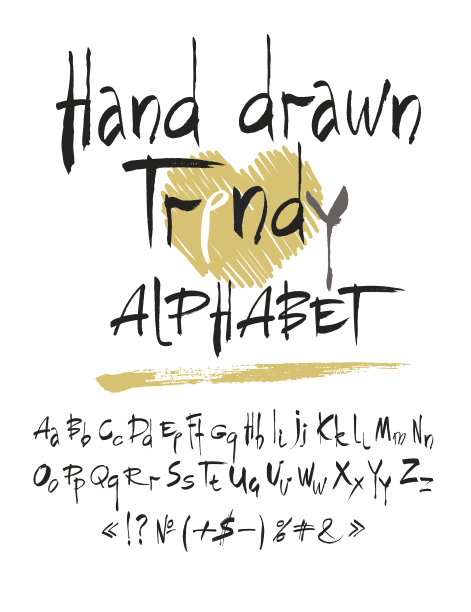 Hand drawn
Trendy
ALPHABET
Aa Bb Cc Dd Ee Ff Gg Hh Ii Jj Kk Ll Mm Nn
Oo Pp Qq Rr Ss Tt Uu Vv Ww Xx Yy Zz
« ! ? № ( + $ – ) % # & »